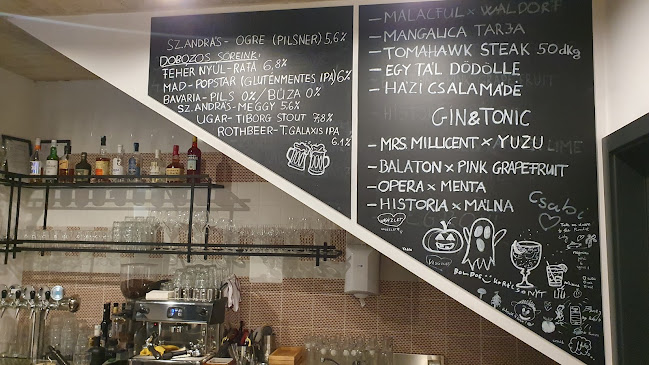 SZ.ANDRÁS- OGRE (PILSNER) 5,6%
DOBOZOS SÖREINK:
FEHÉR NYÚL- RATA 6,8%
MAD- POPSTAR (GLUTÉNMENTES IPA) 6%
BAVARIA- PILS 0% / BÚZA 0%
SZ.ANDRÁS- MEGGY 5.6%
UGAR- TIBORG STOUT 7,8%
ROTHBEER- T.GALAXIS IPA
6.1%
- MALACFÜL x WALDORF
- MANGALICA TARJA
- TOMAHAWK STEAK 50dkg
- EGY TÁL DÖDÖLLE
- HÁZI CSALAMÁDÉ
GIN&TONIC
- MRS. MILLICENT x YUZU
- BALATON x PINK GRAPEFRUIT
- OPERA x MENTA
- HISTORIA x MÁLNA
Csabi